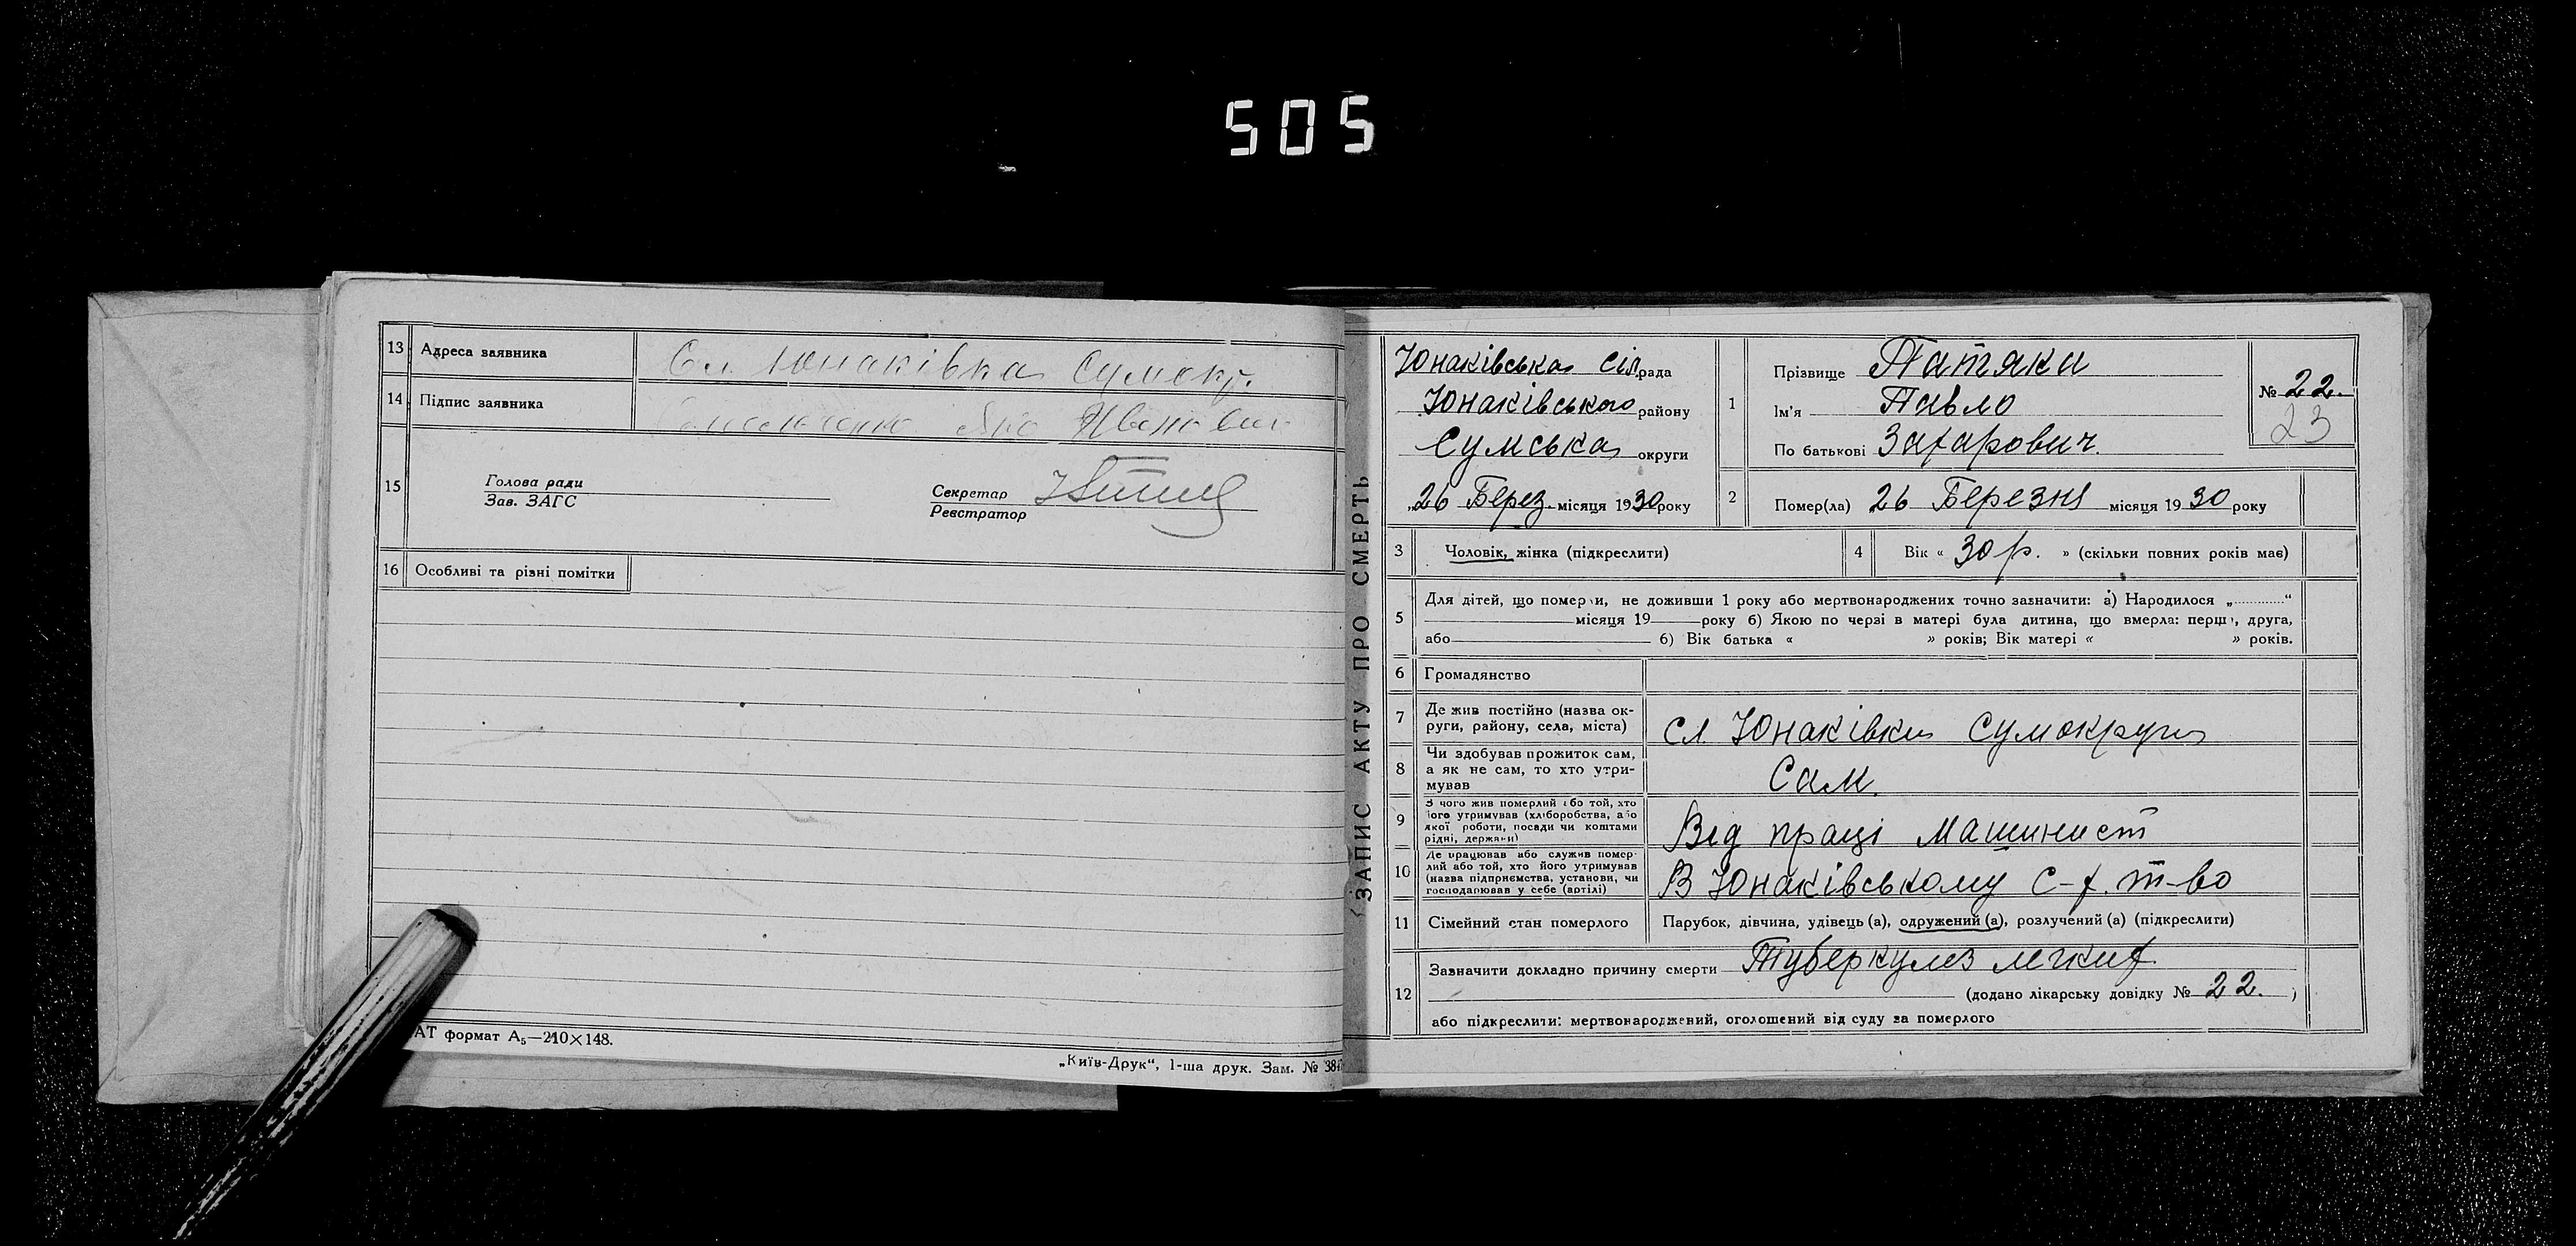 505
13 Адреса заявника Сл. Юнаківка Сумокр.
14 Підпис заявника Яко Иванович
15 Голова ради
Зав. ЗАГС
Секретар
Реєстратор
16 Особливі та різні помітки
АТ формат А₅—210×148.
„Київ-Друк“, 1-ша друк. Зам. № 384
ЗАПИС АКТУ ПРО СМЕРТЬ
Юнаківська сіл рада
Юнаківського району
Сумська округи
„26 Берез. місяця 1930 року
1 Прізвище Патяка
Ім'я Павло
По батькові Захарович.
№ 22.
23
2 Помер(ла) 26 Березня місяця 19 30 року
3 Чоловік, жінка (підкреслити)
4 Вік « 30 р. » (скільки повних років має)
5 Для дітей, що померли, не доживши 1 року або мертвонароджених точно зазначити: а) Народилося „............“
місяця 19 року б) Якою по черзі в матері була дитина, що вмерла: перша, друга,
або 6) Вік батька « » років; Вік матері « » років.
6 Громадянство
7 Де жив постійно (назва ок-
руги, району, села, міста) сл. Юнаківка Сумокруги
8 Чи здобував прожиток сам,
а як не сам, то хто утри-
мував Сам.
9 З чого жив померлий або той, хто
його утримував (хліборобства, або
якої роботи, посади чи коштами
рідні, держави) Від праці Машинист
10 Де працював або служив помер-
лий або той, хто його утримував
(назва підприємства, установи, чи
господарював у себе (артілі) В Юнаківському с-г. т-во
11 Сімейний стан померлого Парубок, дівчина, удівець (а), одружений (а), розлучений (а) (підкреслити)
12 Зазначити докладно причину смерти Туберкулез легких
(додано лікарську довідку № 22. )
або підкреслити: мертвонароджений, оголошений від суду за померлого